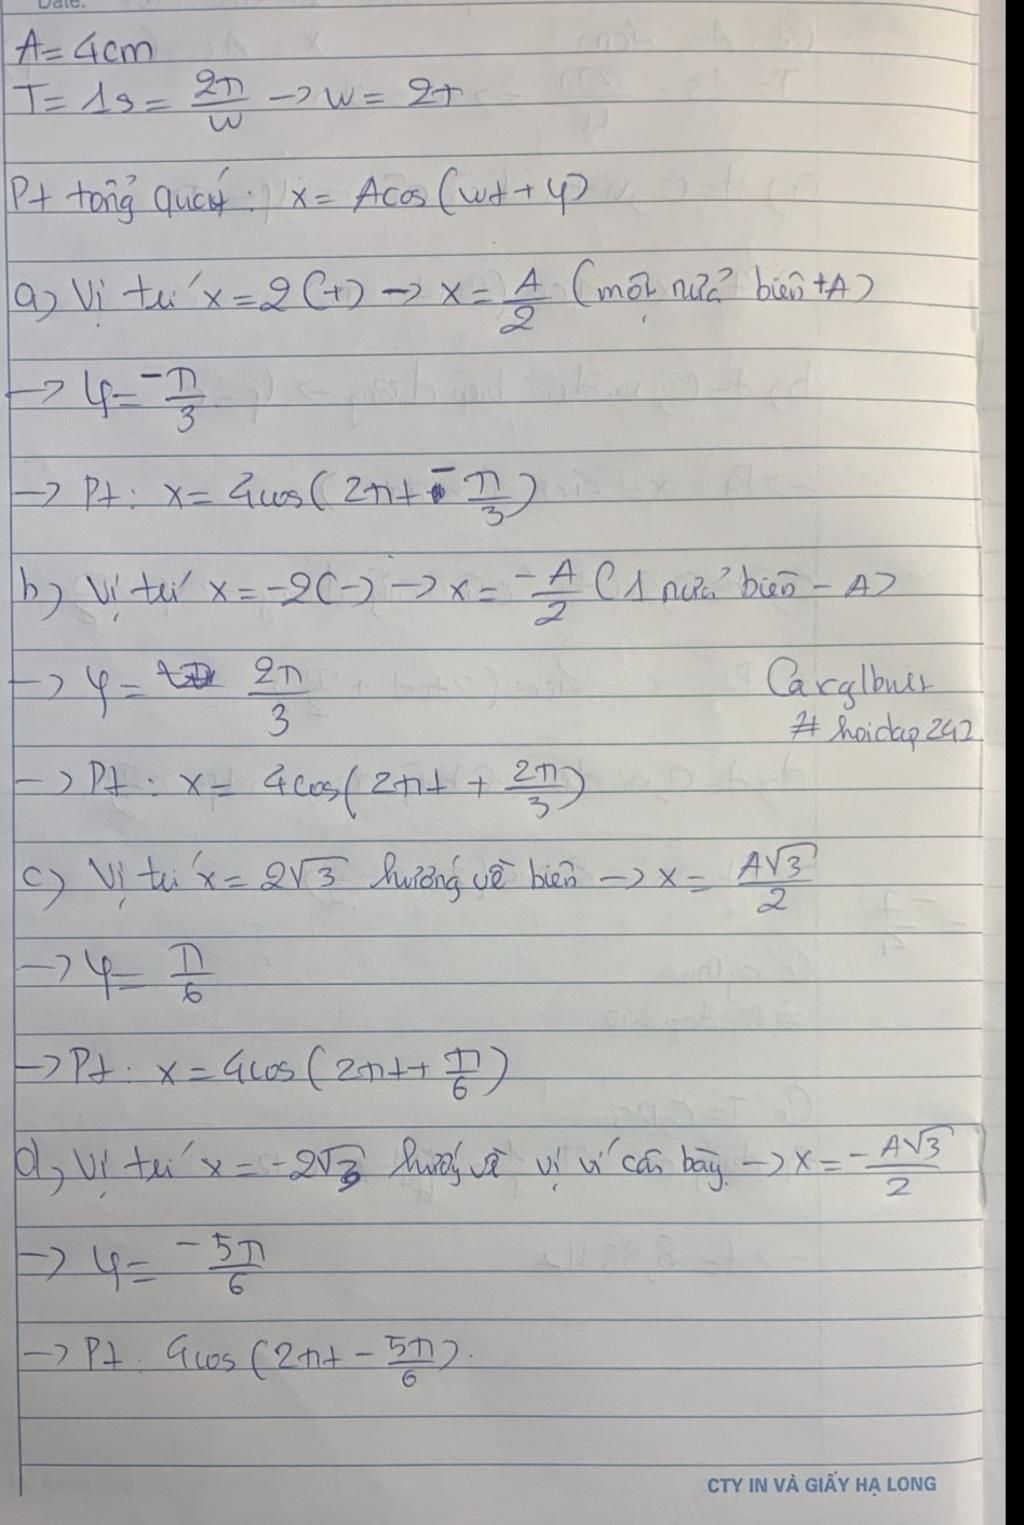 Date:
A = 4cm
T = 1s = 2π/w -> w = 2π
Pt tổng quát: x = Acos(wt + φ)
a) Vị trí x = 2(+) -> x = A/2 (một nửa biên +A)
-> φ = -π/3
-> Pt: x = 4cos(2πt - π/3)
b) Vị trí x = -2(-) -> x = -A/2 (1 nửa biên - A)
-> φ = 2π/3
# hoidap247
-> Pt: x = 4cos(2πt + 2π/3)
c) Vị trí x = 2√3 hướng về biên -> x = A√3/2
-> φ = π/6
-> Pt: x = 4cos(2πt + π/6)
d) Vị trí x = -2√3 hướng về vị ví cân bằng -> x = -A√3/2
-> φ = -5π/6
-> Pt: 4cos(2πt - 5π/6).
CTY IN VÀ GIẤY HẠ LONG